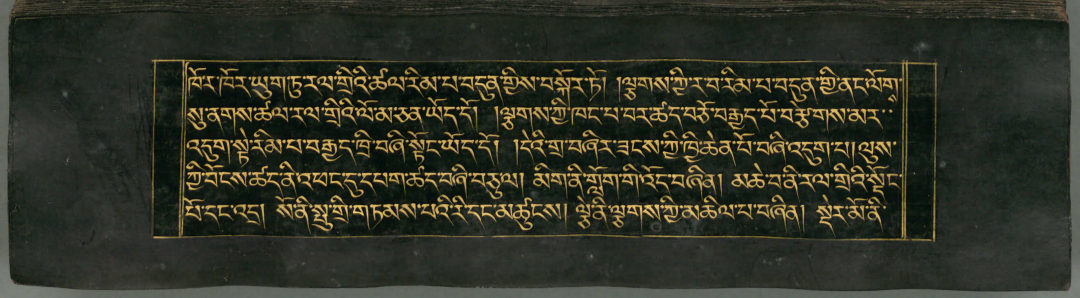 ཁོར་ཁོར་ཡུག་ཏུ་རལ་གྲིའི་ཚལ་རིམ་པ་བདུན་གྱིས་བསྐོར་ཏེ། །ལྕགས་ཀྱི་ར་བ་རིམ་པ་བདུན་གྱི་ནང་ལོགས་
སུ་ནགས་ཚལ་རལ་གྲིའི་ལོ་མ་ཅན་ཡོད་དོ། །ལྕགས་ཀྱི་ཁང་པ་བར་ཚད་བཅོ་བརྒྱད་པོ་བརྩེགས་མར་
འདུག་སྟེ་རིམ་པ་བརྒྱད་ཁྲི་བཞི་སྟོང་ཡོད་དོ། །དེའི་གྲ་བཞི་ར་ཟངས་ཀྱི་ཁྱི་ཆེན་པོ་བཞི་འདུག་པ།།ལུས་
ཀྱི་བོངས་ཚད་ནི་འཕང་དུ་དཔག་ཚད་བཞི་བཅུ་ལ། མིག་ནི་གློག་གི་འོད་བཞིན། མཆེ་བ་ནི་རལ་གྲིའི་སྡོང་
པོ་དང་འདྲ། སོ་ནི་སྤུ་གྲི་གཏམས་པའི་རི་དང་མཚུངས། ལྕེ་ནི་ལྕགས་ཀྱི་མཆིལ་པ་བཞིན། སྡེར་མོ་ནི་